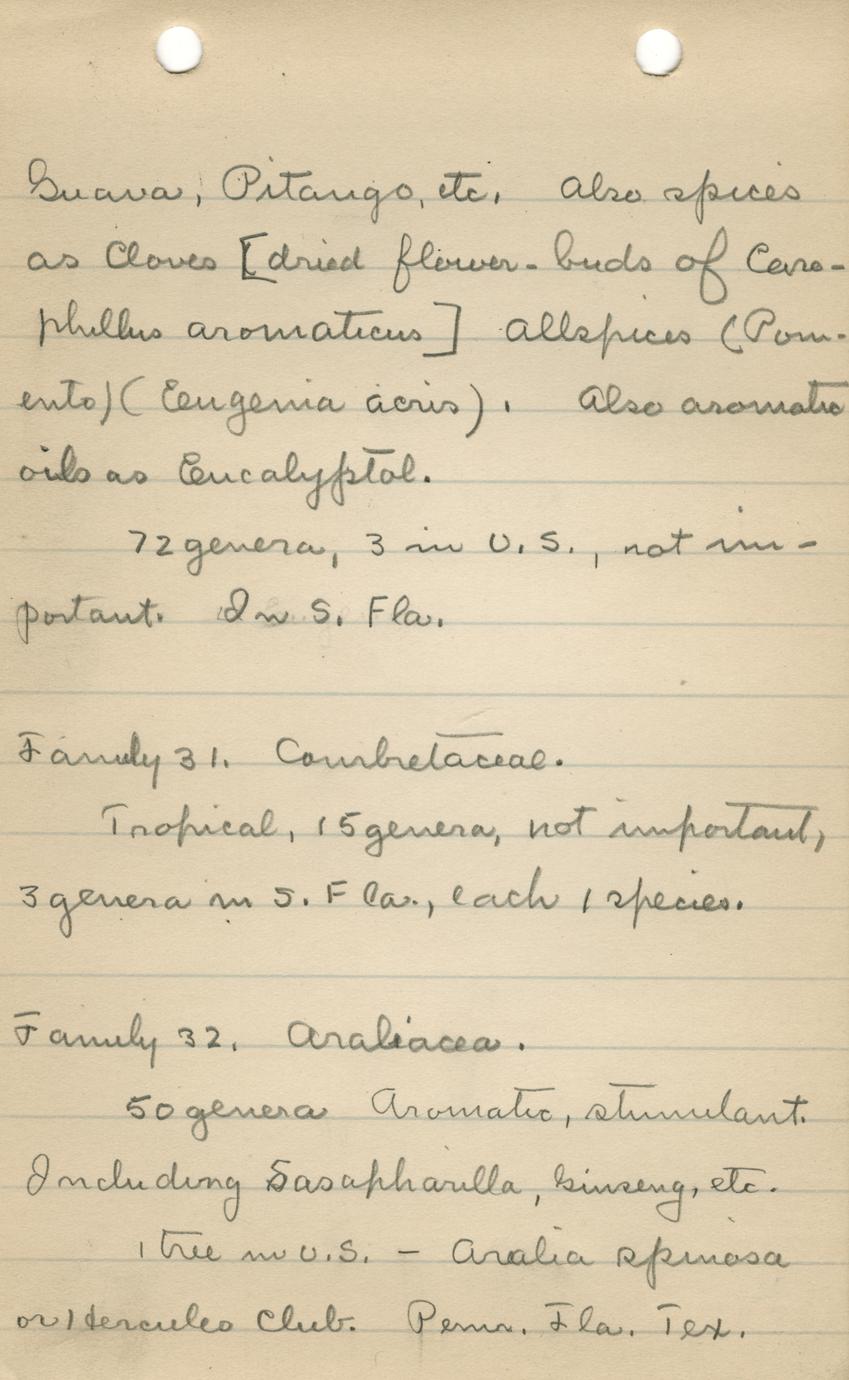 Guava, Pitango, etc. Also spices
as Cloves [dried flower-buds of Caro-
phyllus aromaticus] allspices (Pom-
ento)(Eeugenia acris). Also aromatic
oils as Eucalyptol.
72 genera, 3 in U.S., not im-
portant. In S. Fla.
Family 31. Combretaceae.
Tropical, 15 genera, not important,
3 genera in S. Fla., each 1 species.
Family 32. Araliacea.
50 genera Aromatic, stimulant.
Including Sasapharilla, Ginseng, etc.
1 tree in U.S. - Aralia spinosa
or Hercules Club. Penn. Fla. Tex.